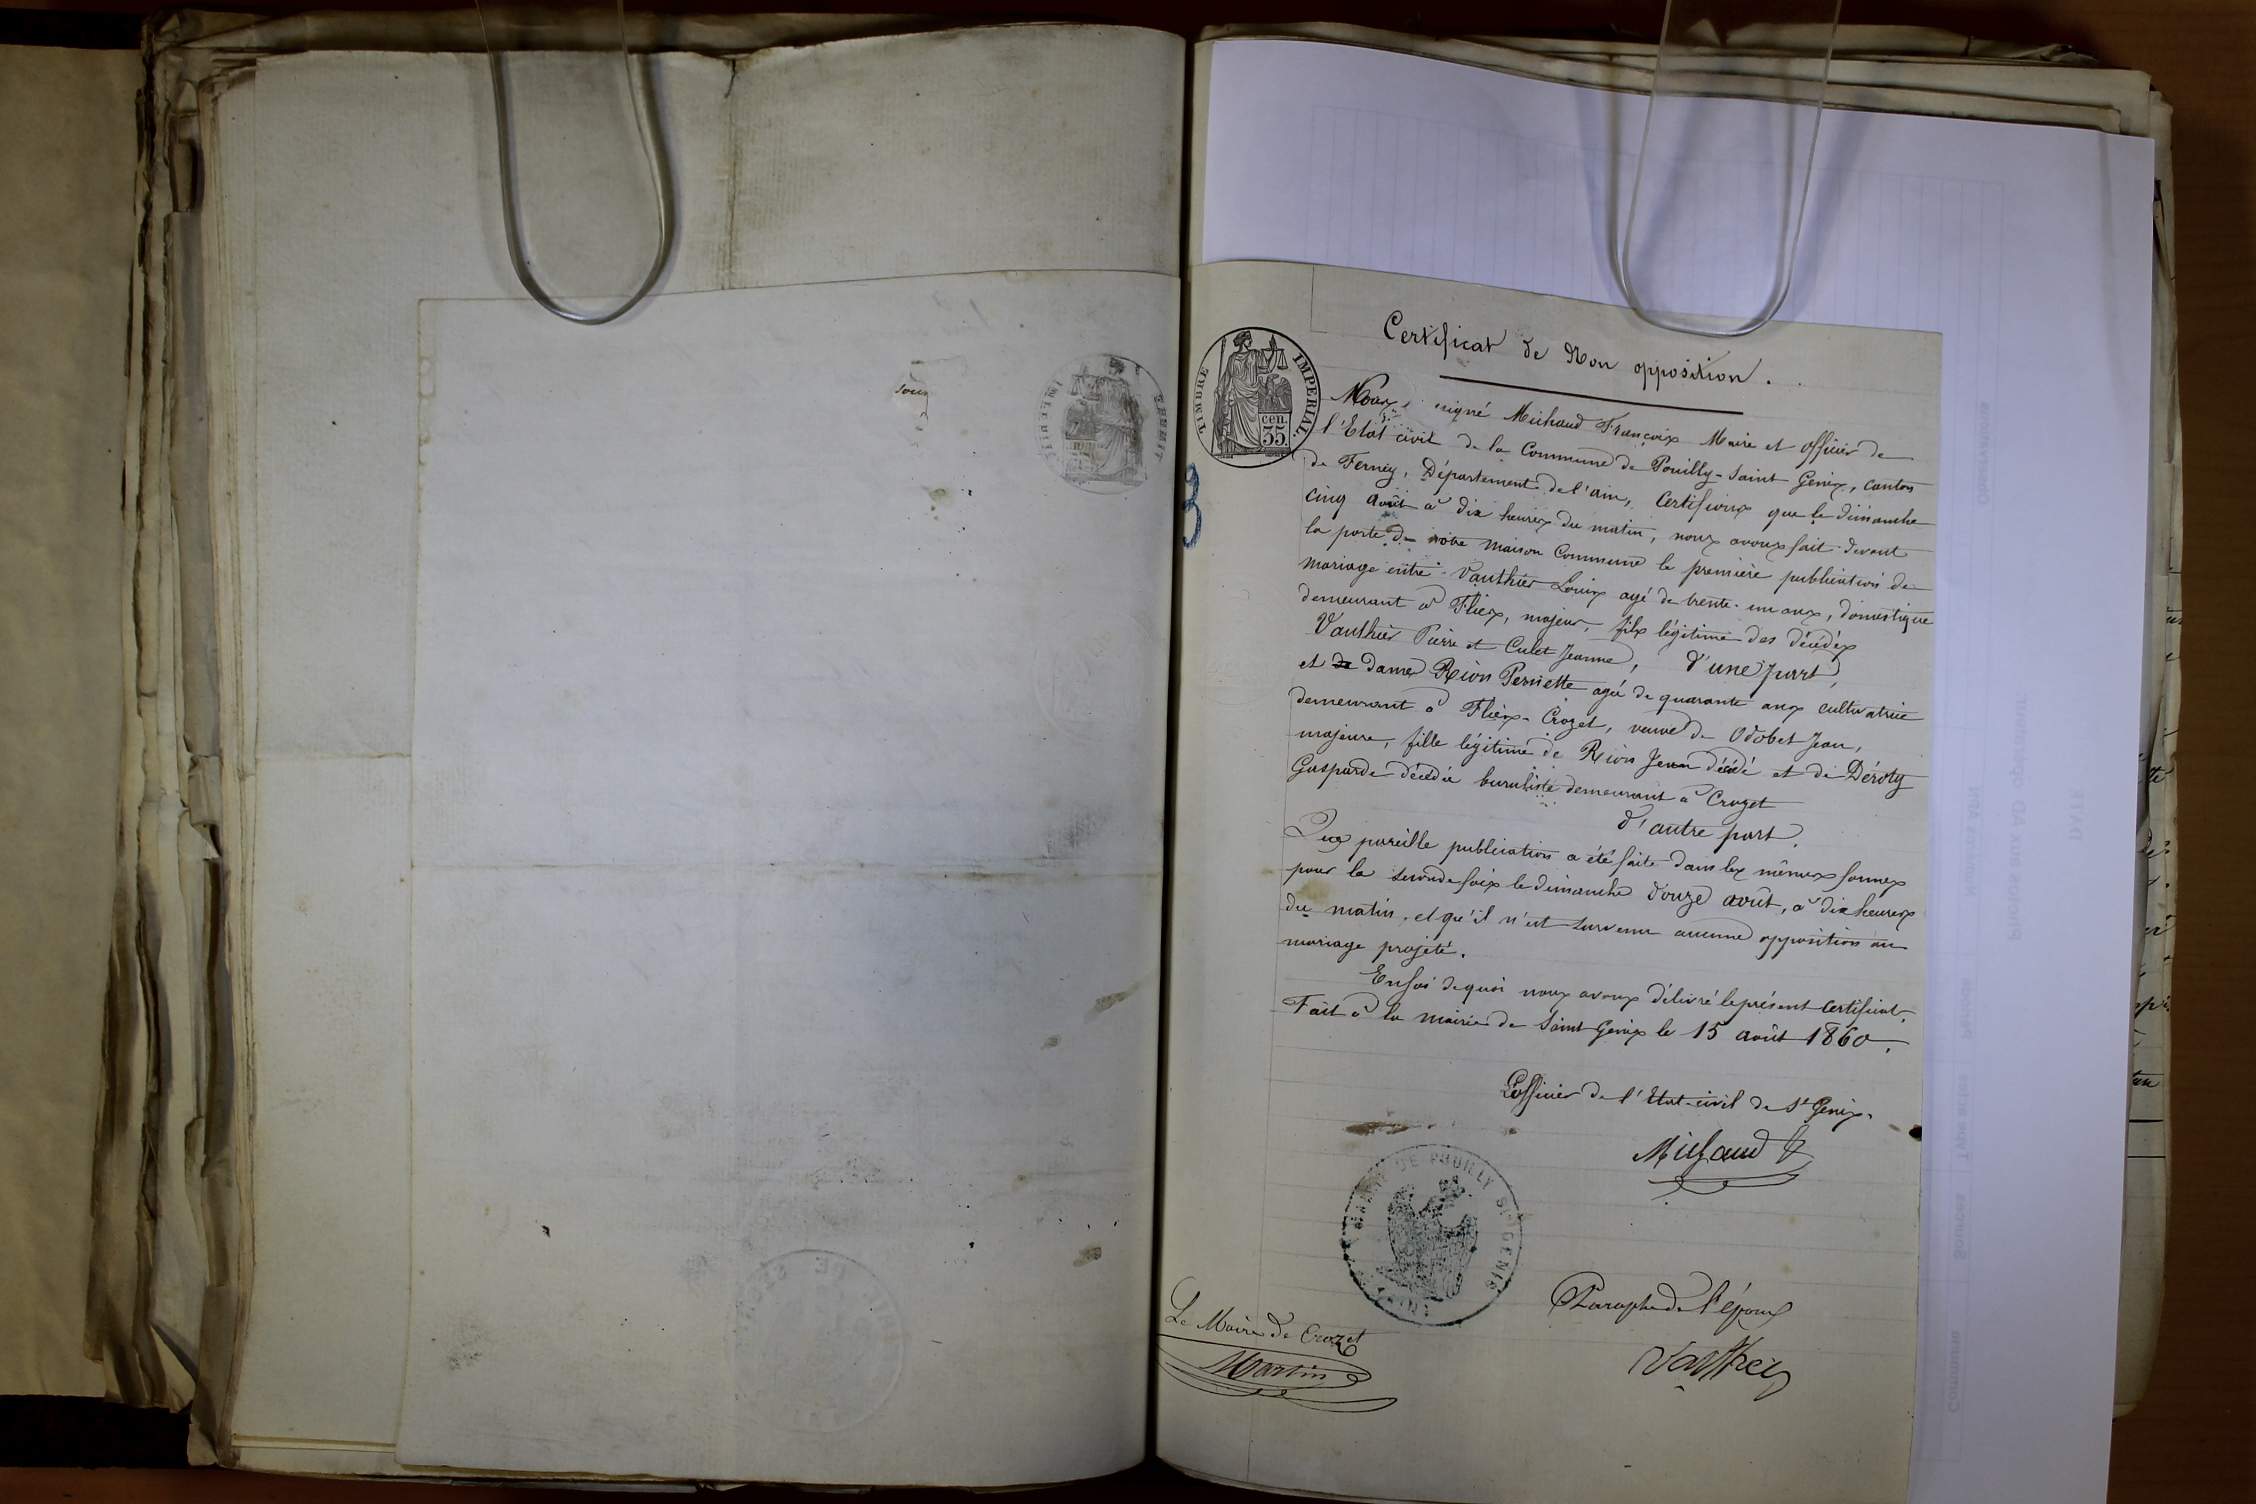 sous
Certificat de Non opposition.
TIMBRE IMPERIAL
35 cen.
Nous signé Michaud François Maire et officier de
l'Etat civil de la Commune de Pouilly-Saint Genix, canton
de Ferney, Département de l'ain, Certifions que le dimanche
cinq août à dix heures du matin, nous avons fait devant
la porte de notre maison Commune la première publication de
mariage entre Vauthier Louis agé de trente-un ans, domestique
demeurant à Fliex, majeur, fils légitime des décédés
Vauthier Pierre et Culet Jeanne, d'une part,
et de dame Rion Pernette agée de quarante ans cultivatrice
demeurant à Fliex-Crozet, veuve de Odobet Jean,
majeure, fille légitime de Rion Jean décédé et de Déroty
Gasparde décédée buraliste demeurant à Crozet
d'autre part.
Que pareille publication a été faite dans les mêmes formes
pour la seconde fois le dimanche douze août, à dix heures
du matin, et qu'il n'est survenu aucune opposition au
mariage projeté.
En foi de quoi nous avons délivré le présent certificat.
Fait à la mairie de Saint Genix le 15 août 1860.
L'officier de l'Etat-civil de St Genix.
Michaud
MAIRIE DE POUILLY ST GENIS
Paraphe de l'époux
Le Maire de Crozet
Martin
Vauthier